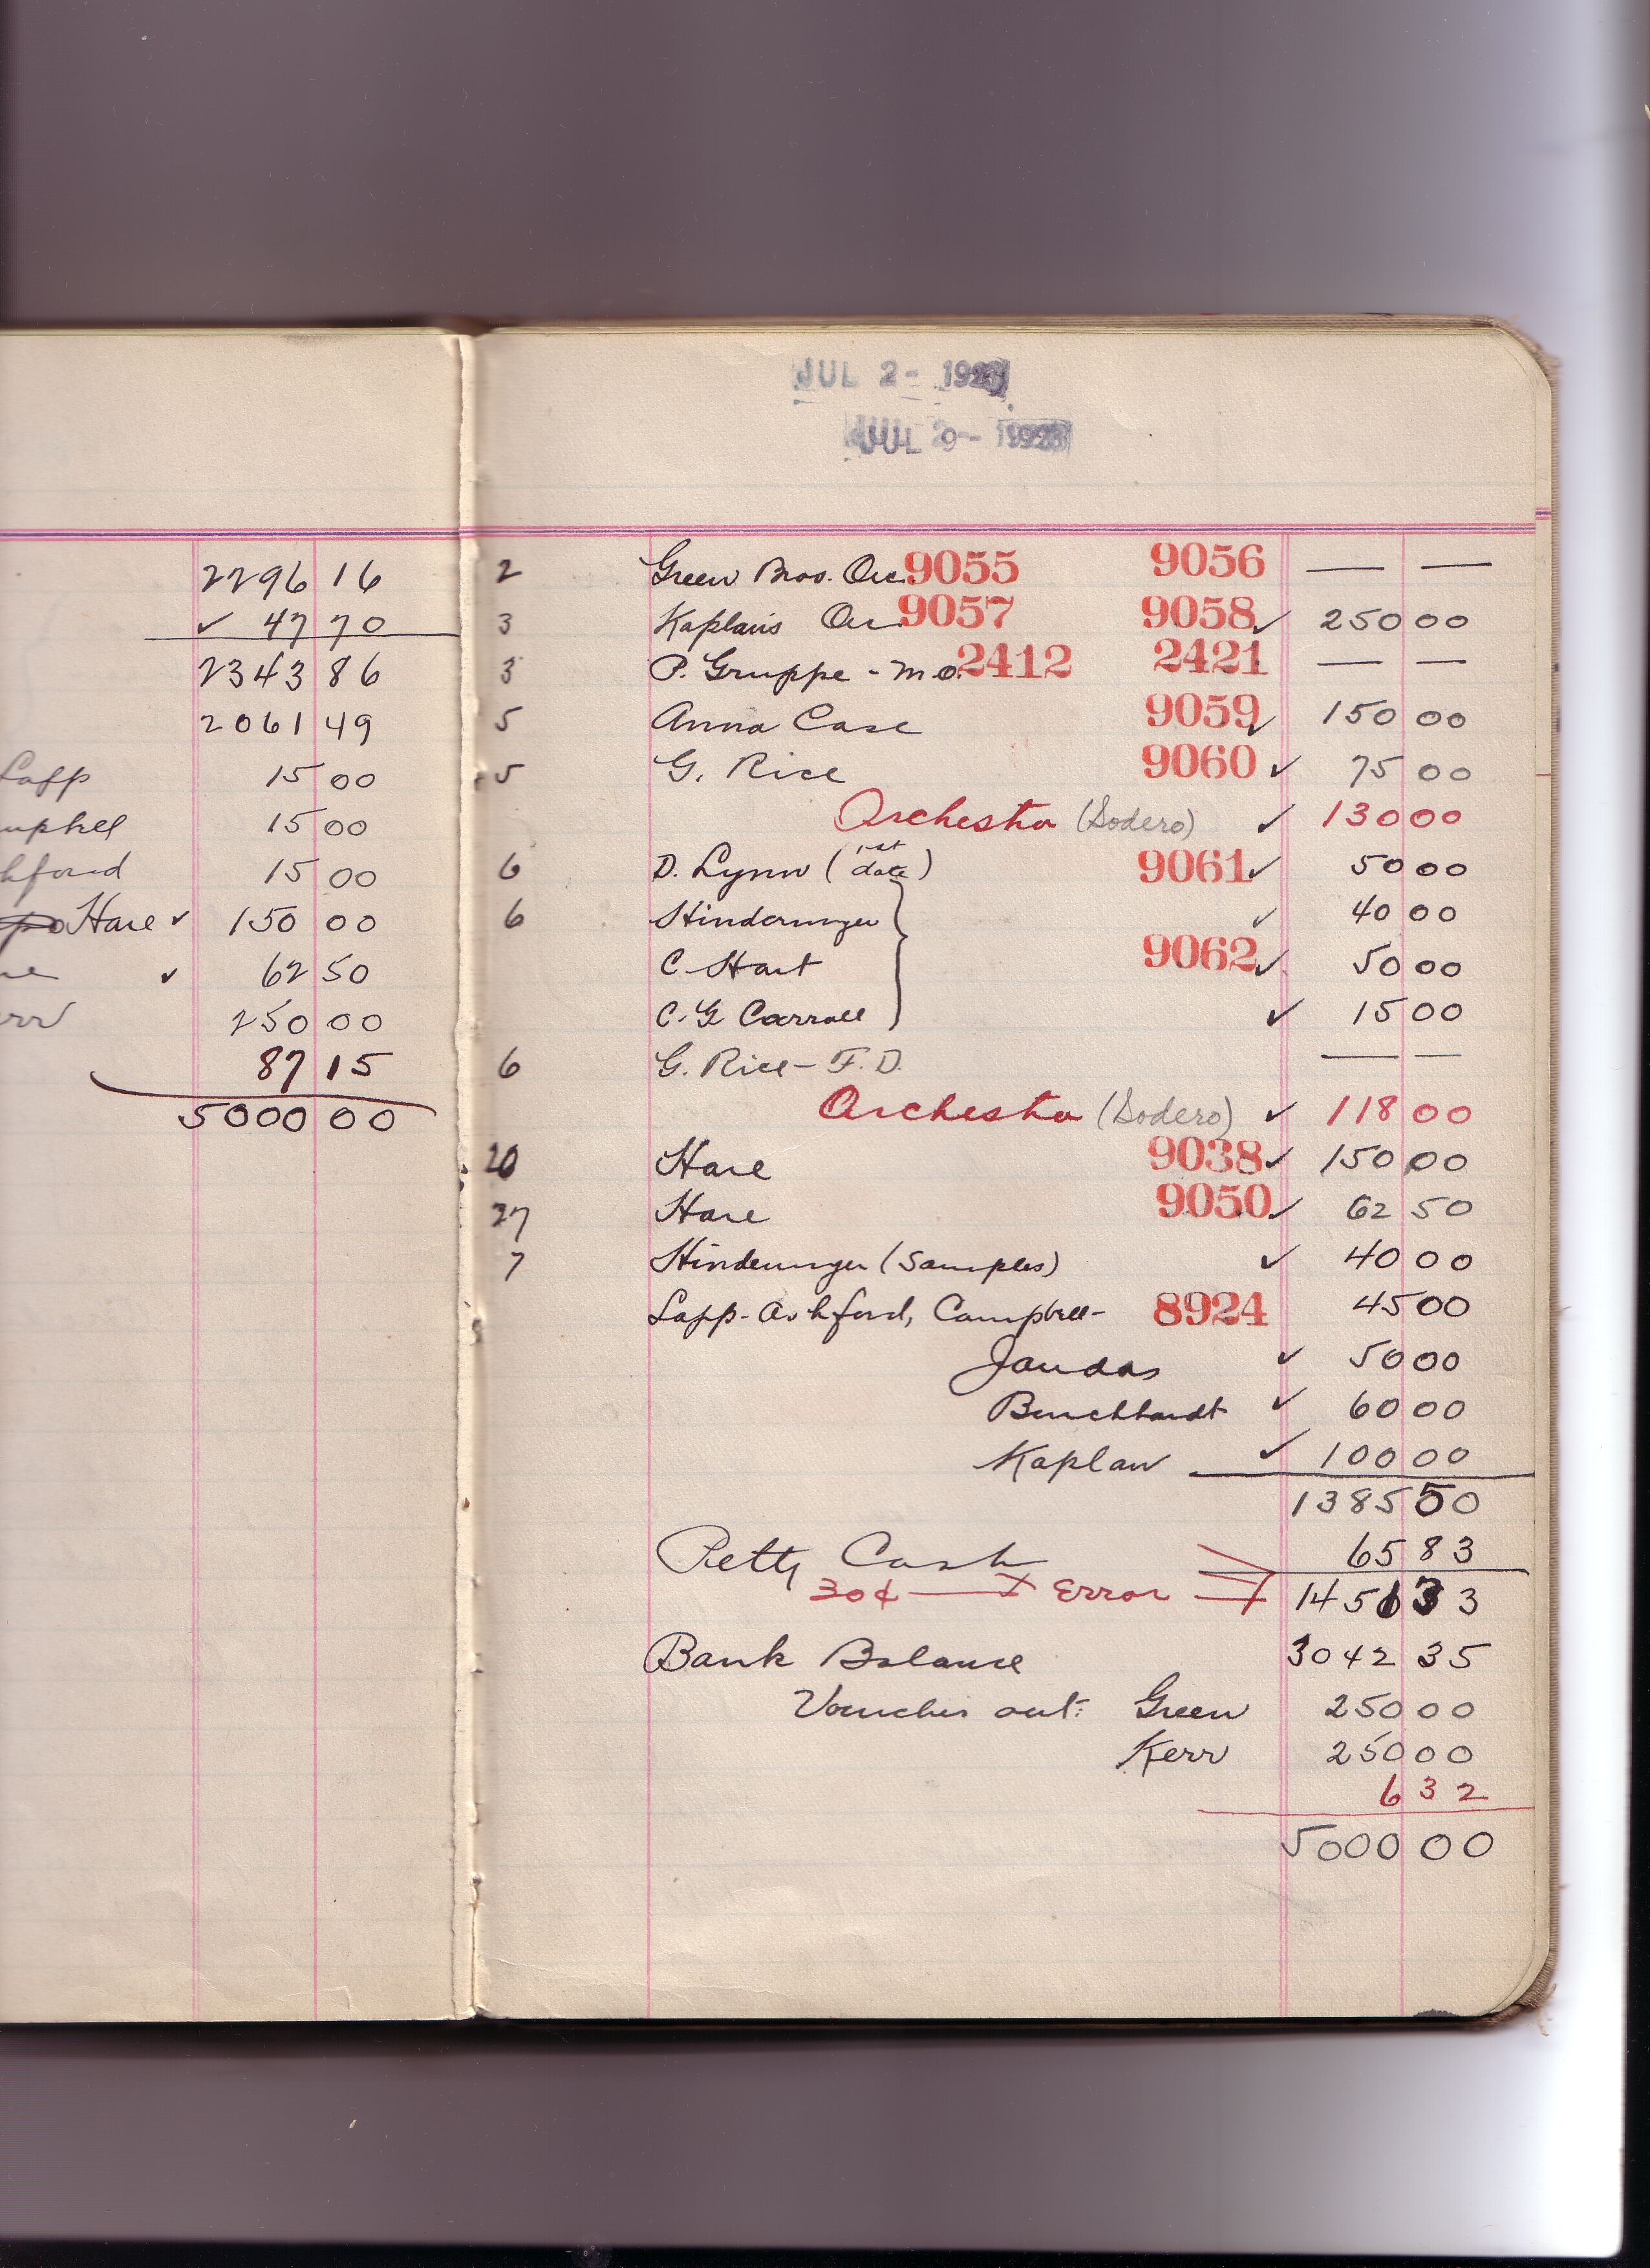 2296 16
✓ 47 70
2343 86
2061 49
Lapp 15 00
15 00
15 00
Hare ✓ 150 00
✓ 62 50
250 00
87 15
5000 00
JUL 2 - 192
JUL 9 - 192
2 Green Bros. Orc. 9055 9056 — —
3 Kaplan's Orc. 9057 9058 ✓ 250 00
3 P. Gruppe - m.o. 2412 2421 — —
5 Anna Case 9059 ✓ 150 00
5 G. Rice 9060 ✓ 75 00
Orchestra (Sodero) ✓ 130 00
6 D. Lynn (1st date) 9061 ✓ 50 00
6 Hindermyer ✓ 40 00
C. Hart 9062 ✓ 50 00
C. G. Carroll ✓ 15 00
6 G. Rice - F. D. — —
Orchestra (Sodero) ✓ 118 00
20 Hare 9038 ✓ 150 00
27 Hare 9050 ✓ 62 50
7 Hindermyer (Samples) ✓ 40 00
Lapp - Ashford, Campbell - 8924 45 00
Jaudas ✓ 50 00
Burckhardt ✓ 60 00
Kaplan ✓ 100 00
1385 50
Petty Cash 65 83
30¢ — x Error → 1451 33
Bank Balance 3042 35
Voucher out: Green 250 00
Kerr 250 00
6 32
5000 00